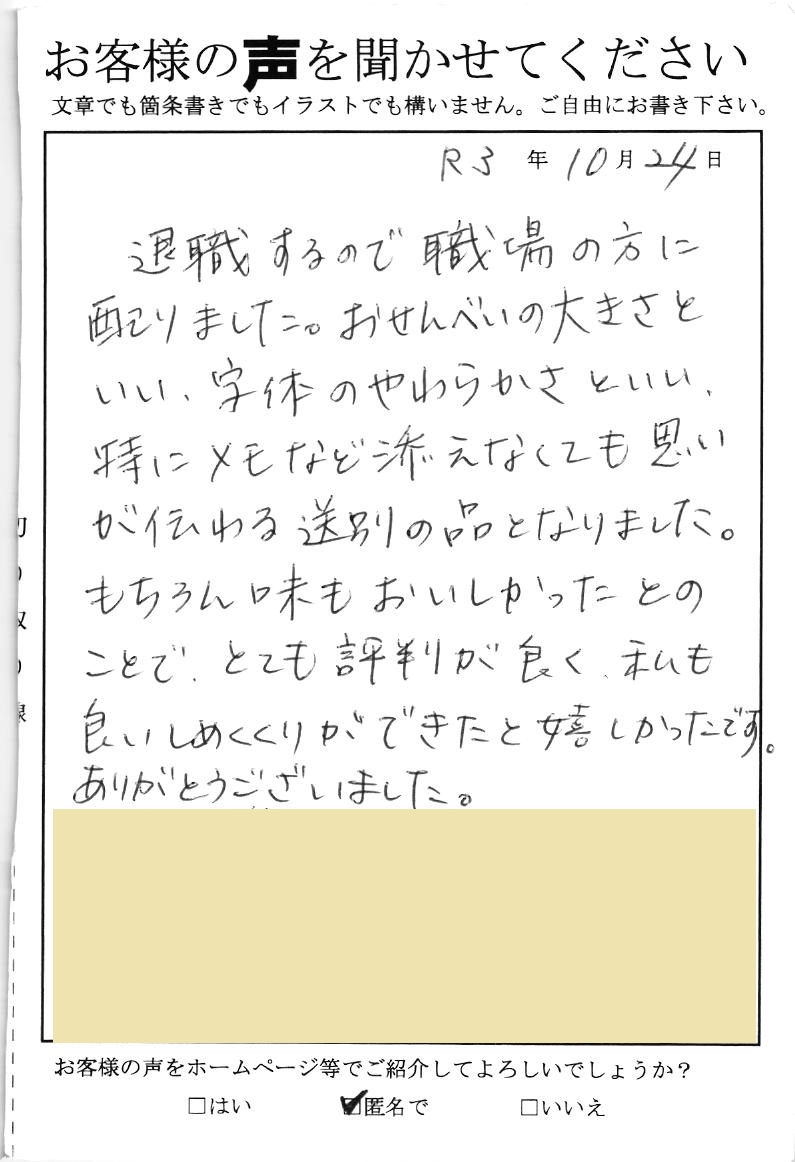 お客様の声を聞かせてください
文章でも箇条書きでもイラストでも構いません。ご自由にお書き下さい。
R3 年 10 月 24 日
退職するので職場の方に
配りました。おせんべいの大きさと
いい、字体のやわらかさといい、
特にメモなど添えなくても思い
が伝わる送別の品となりました。
もちろん味もおいしかったとの
ことで、とても評判が良く、私も
良いしめくくりができたと嬉しかったです。
ありがとうございました。
切り取り線
お客様の声をホームページ等でご紹介してよろしいでしょうか？
□はい ☑匿名で □いいえ